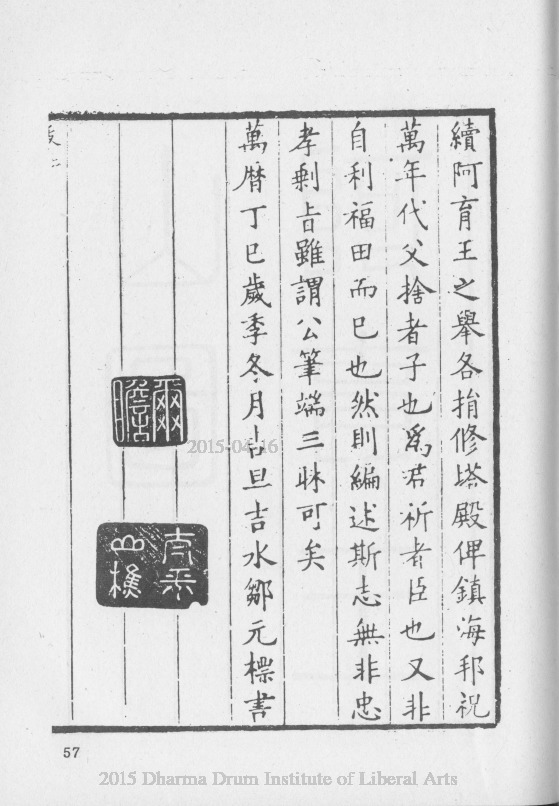 續阿育王之舉各捐修塔殿俾鎮海邦祝
萬年代父捨者子也爲君祈者臣也又非
自利福田而已也然則編述斯志無非忠
孝剩旨雖謂公筆端三昧可矣
萬曆丁巳歲季冬月吉旦吉水鄒元標書
爾瞻
太平山樵
2015-04-16
57
2015 Dharma Drum Institute of Liberal Arts